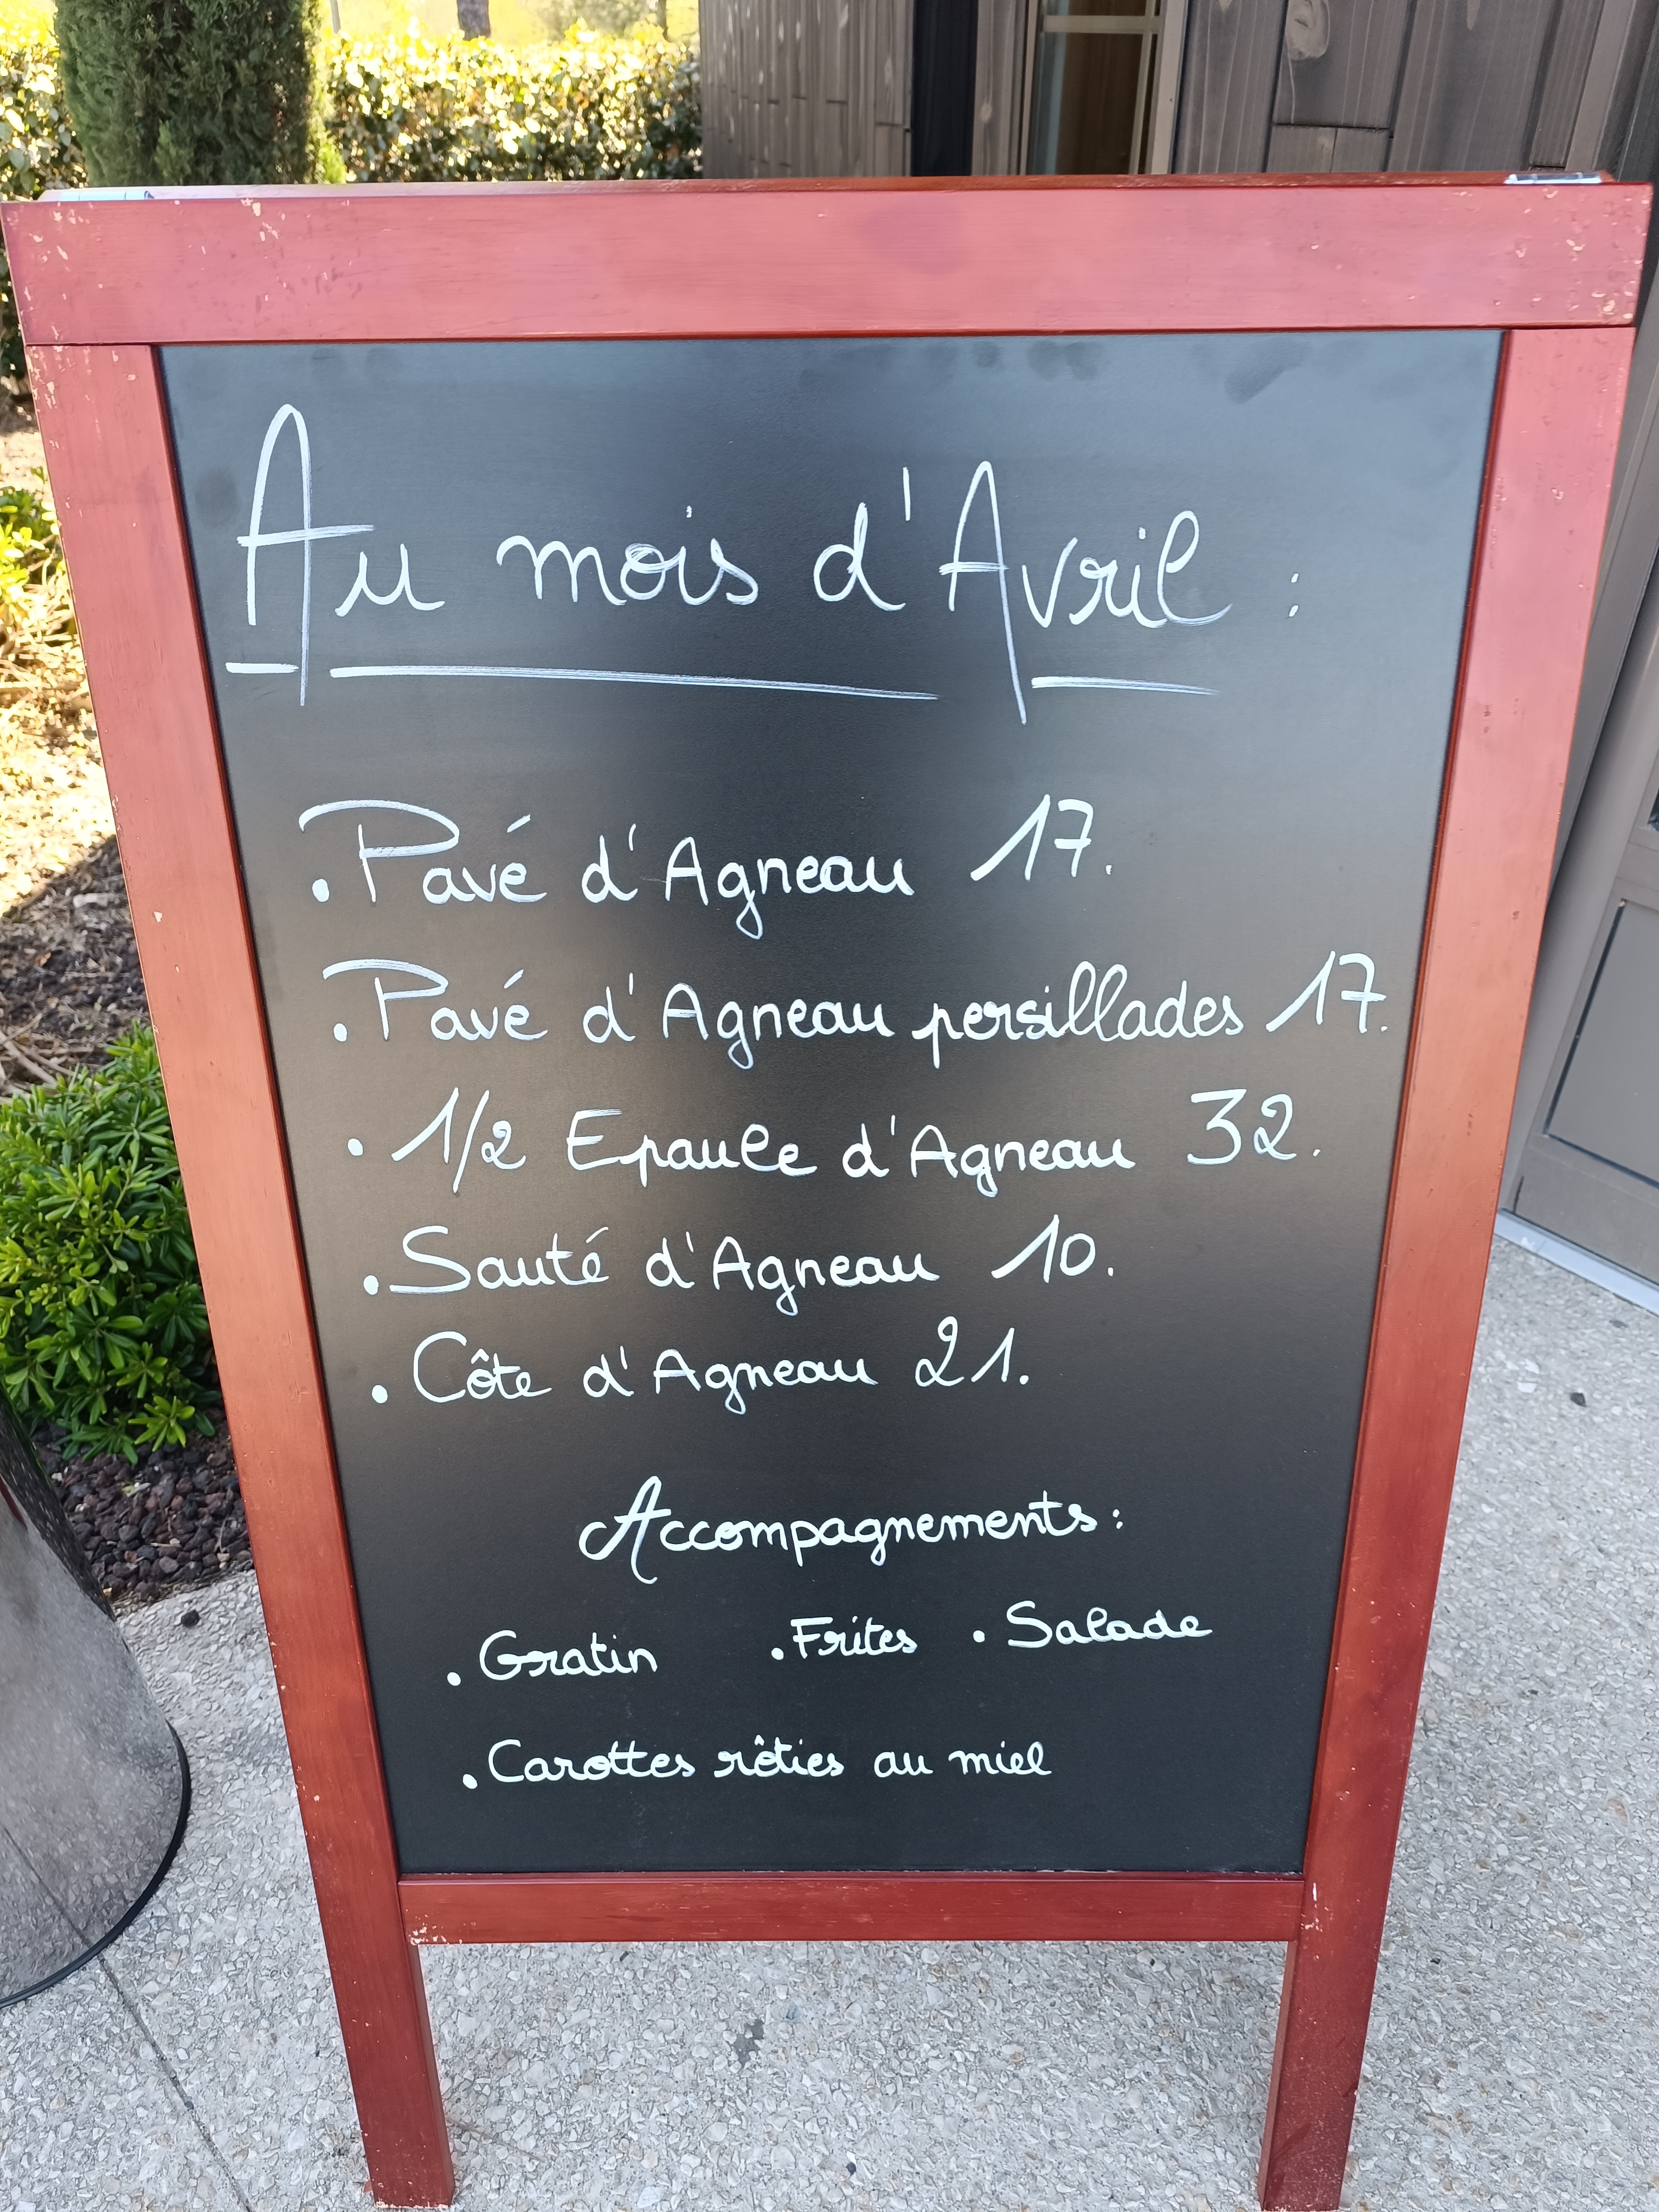 Au mois d'Avril :
• Pavé d'Agneau 17.
• Pavé d'Agneau persillades 17.
• 1/2 Epaule d'Agneau 32.
• Sauté d'Agneau 10.
• Côte d'Agneau 21.
Accompagnements :
• Gratin • Frites • Salade
• Carottes rôties au miel